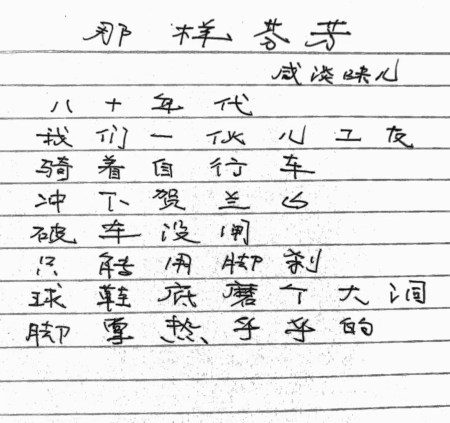 那样芬芳
咸淡映儿
八十年代
我们一伙儿工友
骑着自行车
冲下贺兰山
破车没闸
只能用脚刹
球鞋底磨个大洞
脚掌热乎乎的